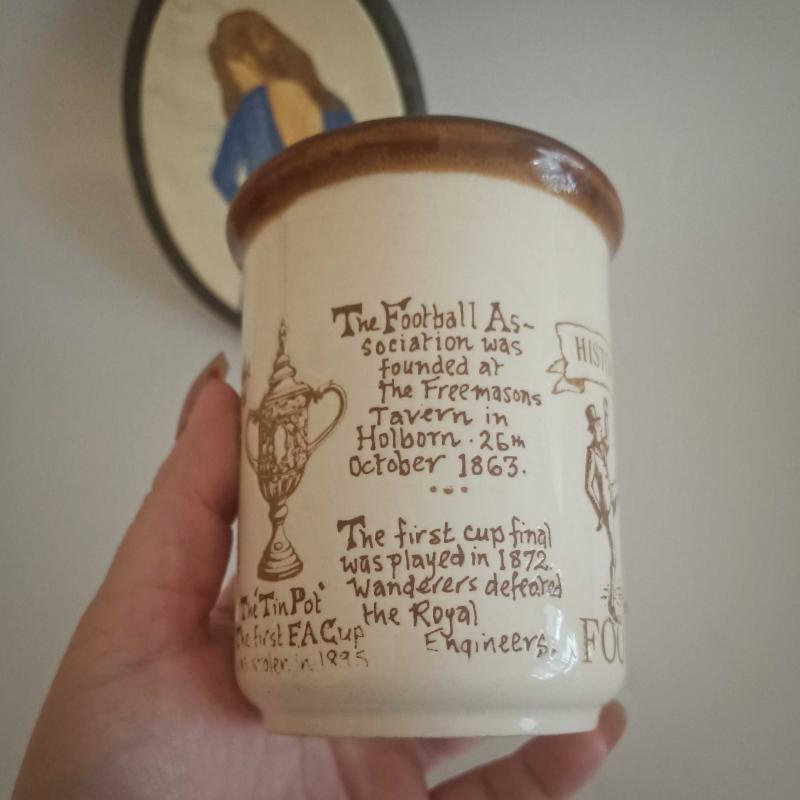 The Football As-
sociation was
founded at
the Freemasons
Tavern in
Holborn · 26th
October 1863.
The first cup final
was played in 1872.
Wanderers defeated
the Royal
Engineers.
The 'Tin Pot'
The first F.A Cup
was stolen in 1895
HIST
FOO